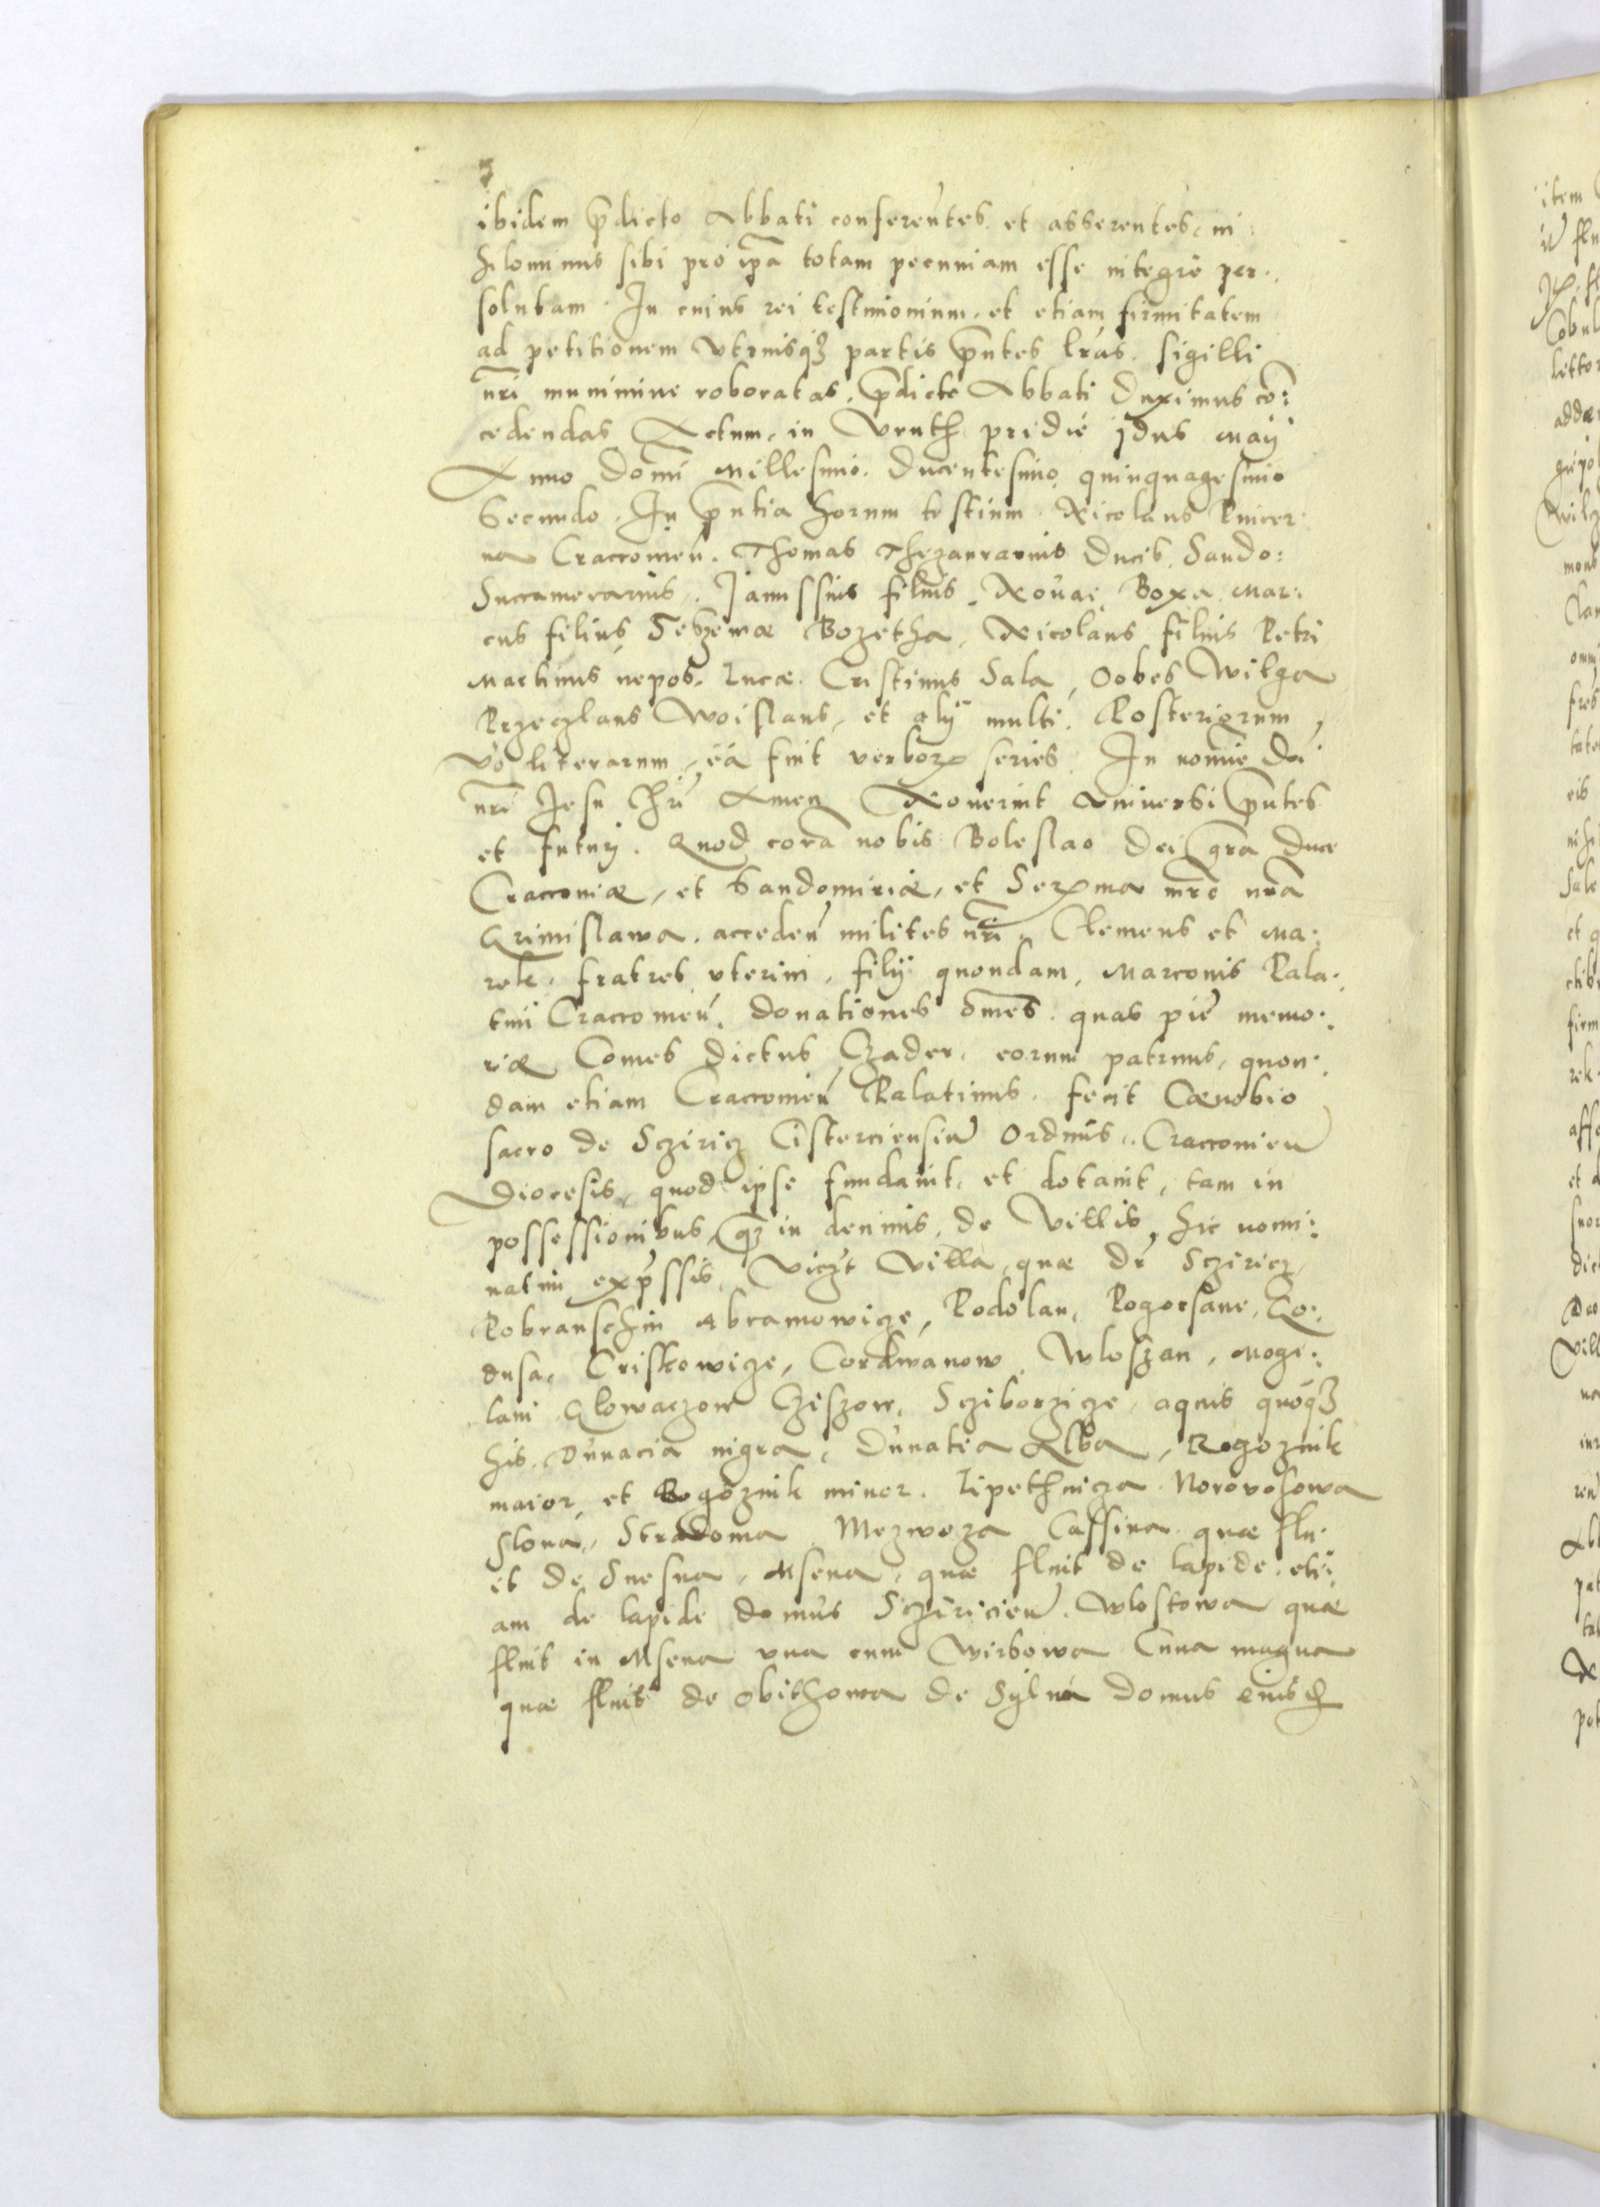 ibidem p̄dicto Abbati conferentes et asserentes, ni:
hilominus sibi pro ip̄a totam pecuniam esse integre per:
solutam. In cuius rei testimonium, et etiam firmitatem
ad petitionem vtriusq̨ partis p̄ntes l̄ras. sigilli
n̄ri munimine roboratas, p̄dicto Abbati Duximus cō:
cedendas Actum, in Vruth pridie jdus Maij
Anno Domī Millesimo. Ducentesimo quinquagesimo
Secundo. In p̄ntia horum testium. Nicolaus Pincer:
na Cracouień. Thomas Thezaurarius Ducis Sando:
Succamerarius. Janussius filius Nouai Boxa Mar:
cus filius Bozetha, Nicolaus filius Petri
Martinus nepos Lucæ. Cristinus Sala, Oobes Wilga
Przeczlaus Woislaus, et alij multi. Posteriorum
vō literarum, ea fuit verboꝝ series. In nomīe Dn̄i
n̄ri Jesu Chri Amen Nouerint vniuersi p̄ntes
et futurj. Quod corā nobis Boleslao Dei gr̄a Duce
Cracouiæ, et Sandomiriæ, et Serma mr̄e nr̄a
Grimislawa, acceden̄ milites nr̄i, Clemens et Ma:
rek, fratres vterini, filij quondam, Marconis Pala:
tini Cracouień. donationes om̄es. quas piē memo:
riæ Comes dictus Czader, eorum patruus, quon:
dam etiam Cracouień Palatinus. fecit Cœnobio
sacro de Scziricz Cisterciensiū Ordinis. Cracouień
Diocesis, quod ipse fundauit, et dotauit, tam in
possessionibus, q̄ in decimis, de Villis, hic nomi:
natim exp̄ssis, Viczt Villa, quæ dr̄ Scziricz,
Pobranschin Abramowicze, Podolan, Pogorsane, Go:
dusa, Criscowicze, Cordwanow, Wloszan, Mogi:
lani Glowaczow Cziszow, Scziborzicze, aquis quoq̨
his. Dunacia nigra, Dunatia Alba, Rogoznik
maior, et Rogoznik minor. Lipethnicza Norovosowa
Slona, Stradoma Mezwoza Cassina quæ flu:
it de Snesna, Msena, quæ fluit de lapide, eti:
am de lapide domus Scziricień. Wlostowa quæ
fluit in Msena vna cum Wirbowa Cuna magna
quæ fluit de obithowa de Sylua Domus eiusd̄